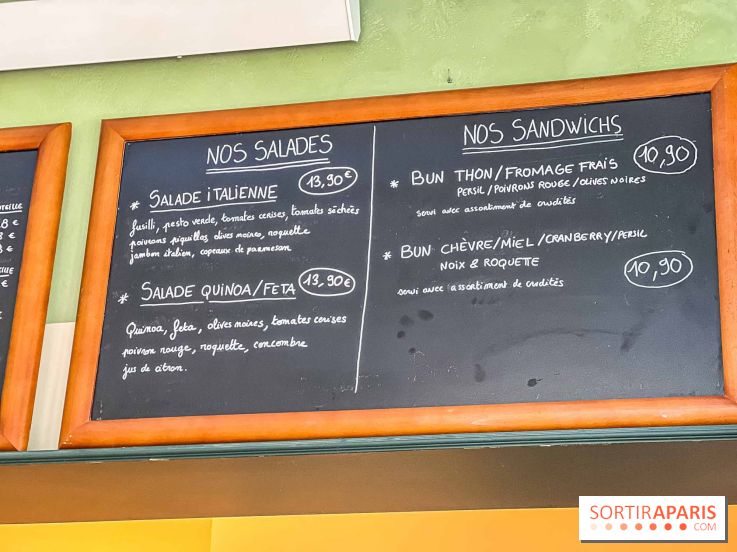 NOS SALADES
* SALADE ITALIENNE 13,90€
fusilli, pesto verde, tomates cerises, tomates séchées
poivrons piquillos, olives noires, roquette
jambon italien, copeaux de parmesan
* SALADE QUINOA/FETA 13,90€
Quinoa, feta, olives noires, tomates cerises
poivron rouge, roquette, concombre
jus de citron.
NOS SANDWICHS
* BUN THON/FROMAGE FRAIS 10,90
PERSIL/POIVRONS ROUGE/OLIVES NOIRES
servi avec assortiment de crudités
* BUN CHÈVRE/MIEL/CRANBERRY/PERSIL
NOIX & ROQUETTE 10,90
servi avec assortiment de crudités
SORTIRAPARIS
.COM